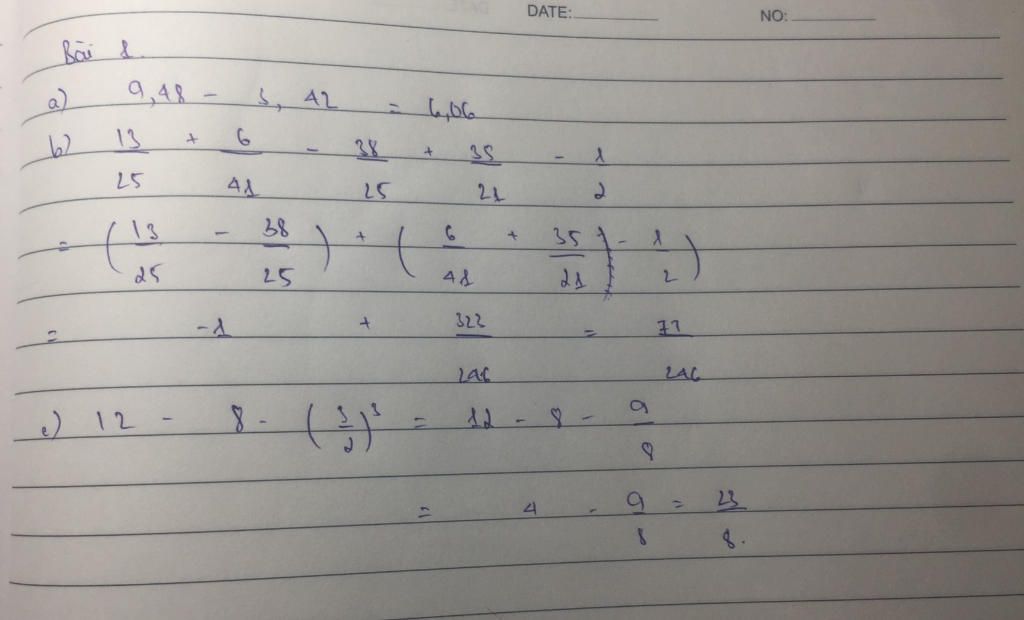 DATE: NO:
Bài 1.
a) 9,48 - 3,42 = 6,06
b) 13/25 + 6/41 - 38/25 + 35/21 - 1/2
= (13/25 - 38/25) + (6/41 + 35/21 - 1/2)
= -1 + 323/246 = 77/246
c) 12 - 8 - (3/2)^3 = 12 - 8 - 9/8
= 4 - 9/8 = 23/8.